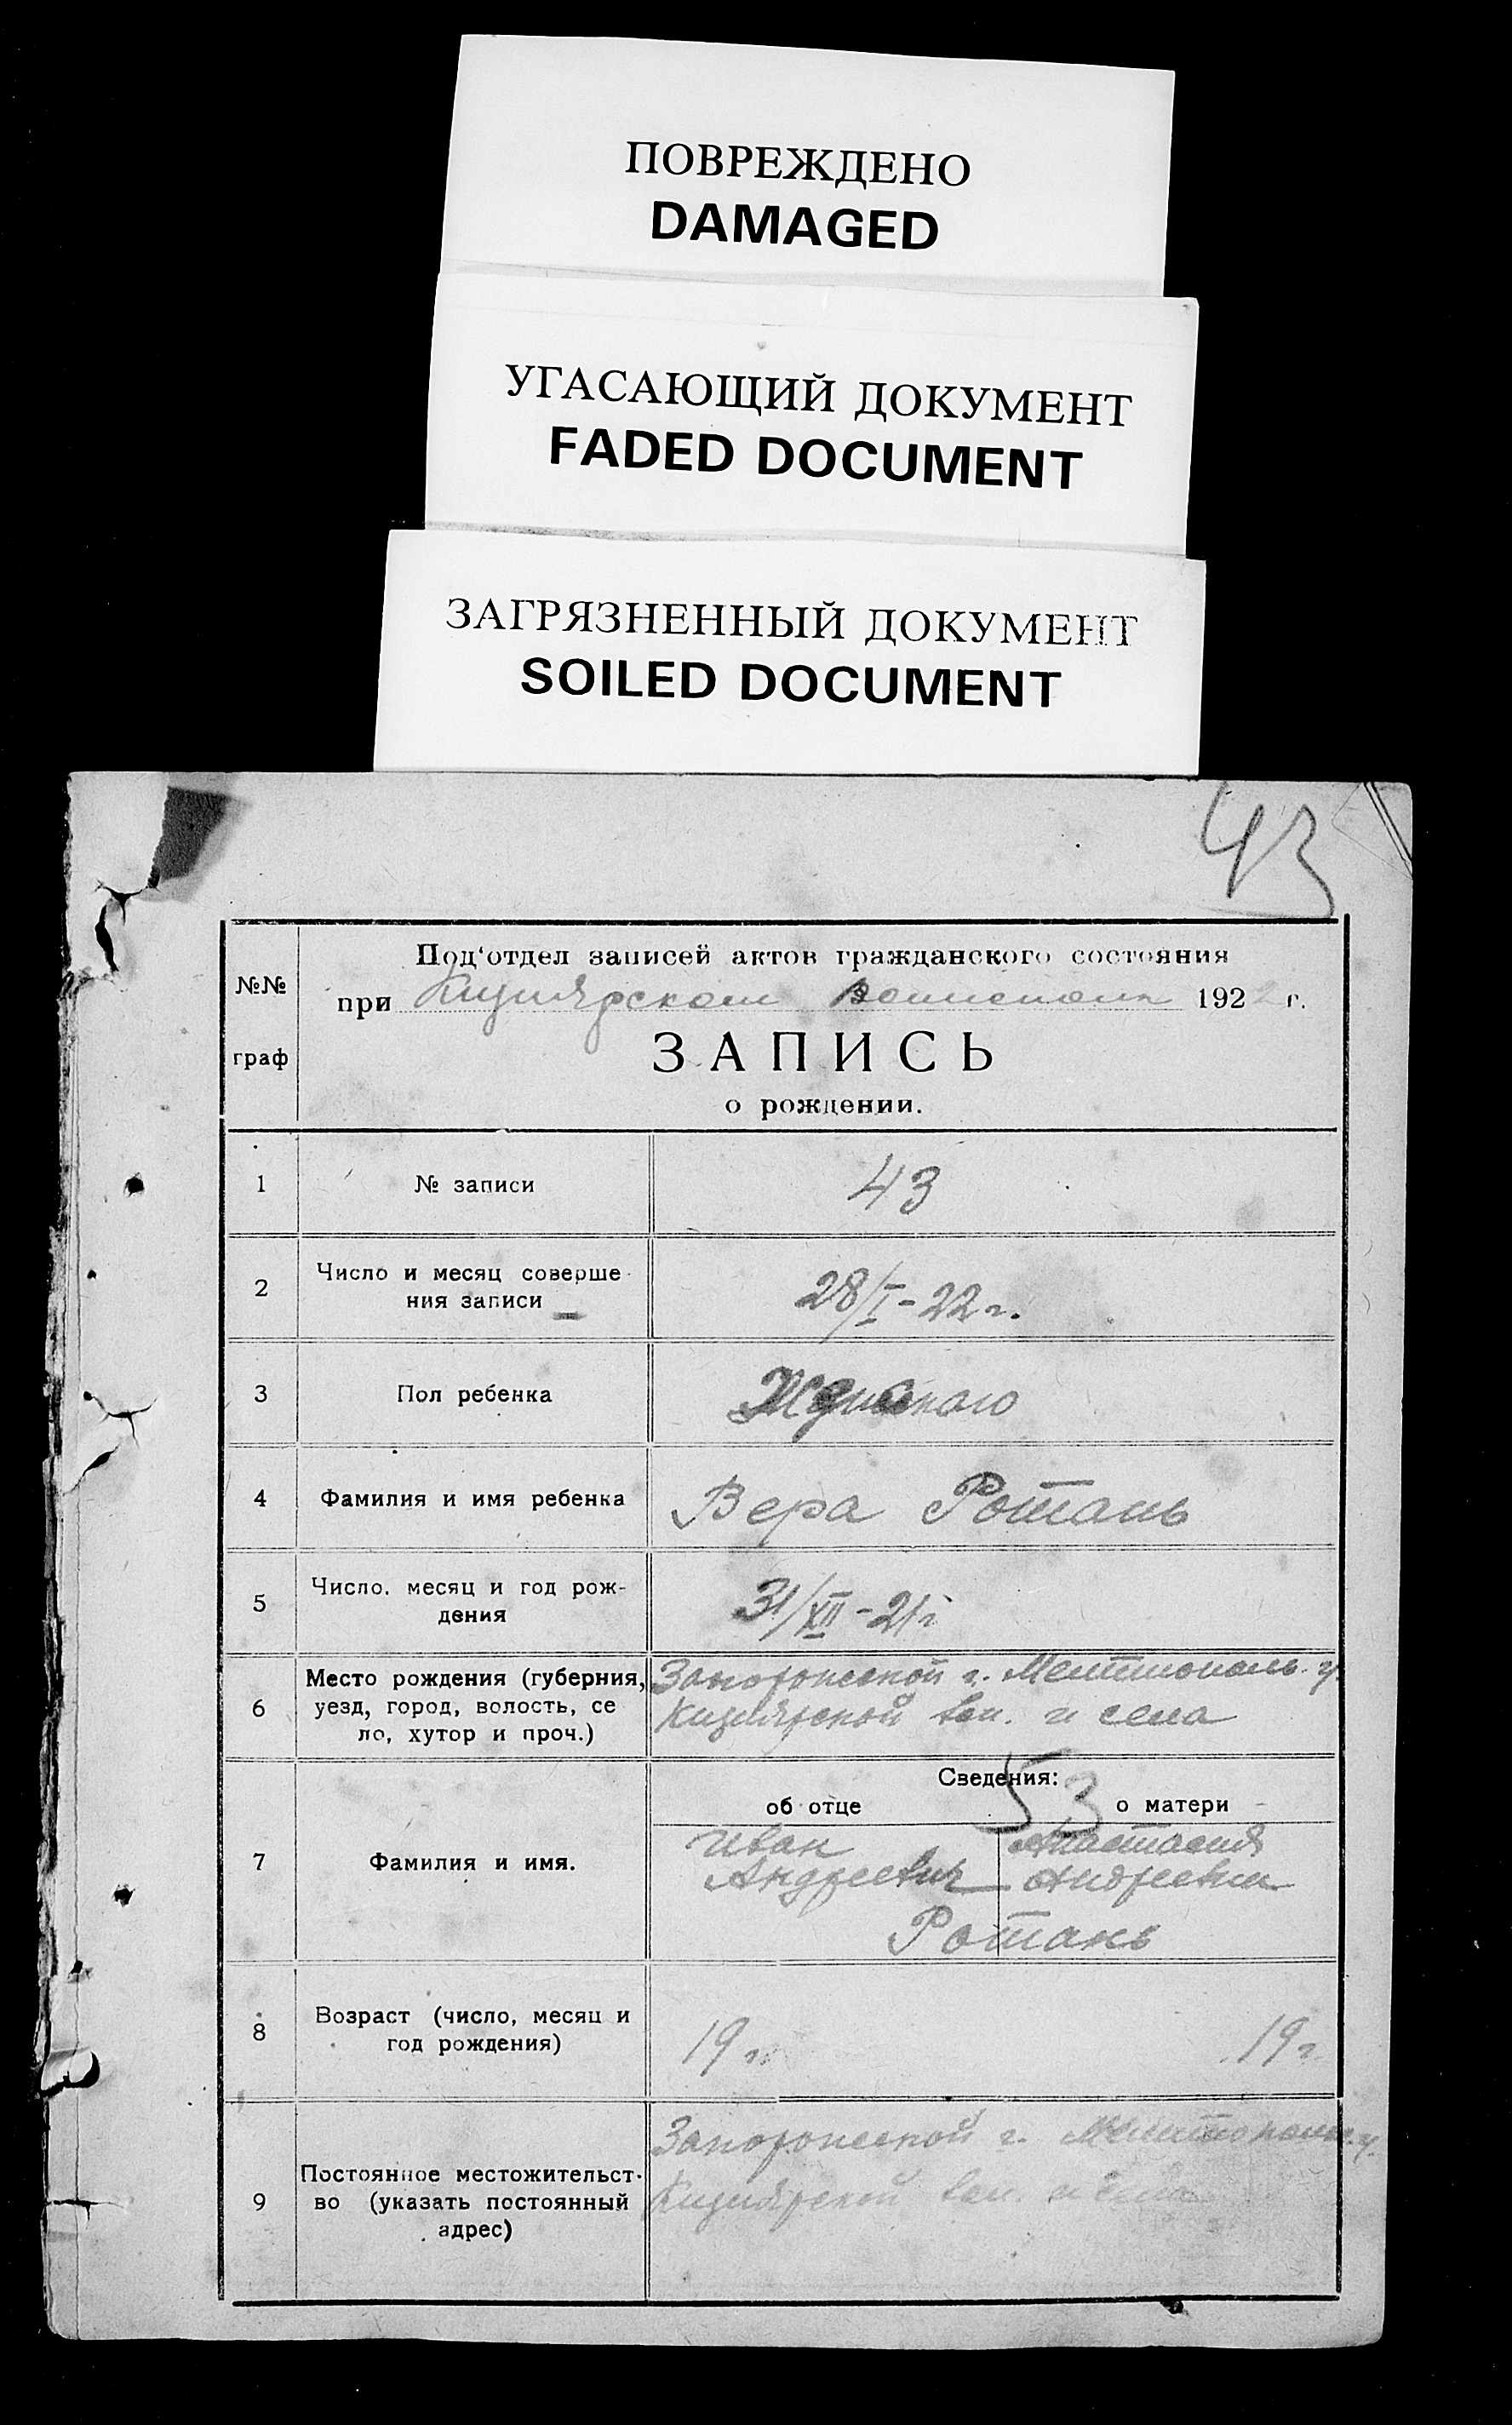 ПОВРЕЖДЕНО
DAMAGED
УГАСАЮЩИЙ ДОКУМЕНТ
FADED DOCUMENT
ЗАГРЯЗНЕННЫЙ ДОКУМЕНТ
SOILED DOCUMENT
43
№№
граф
Под'отдел записей актов гражданского состояния
при Кизиярском 1922 г.
ЗАПИСЬ
о рождении.
1 № записи 43
2 Число и месяц соверше-
ния записи 28/I-22 г.
3 Пол ребенка Женского
4 Фамилия и имя ребенка Вера Ротань
5 Число, месяц и год рож-
дения 31/XII-21 г
6 Место рождения (губерния,
уезд, город, волость, се
ло, хутор и проч.)
Запорожской г. Мелитополь. у.
Кизиярской вол. и села
Сведения:
об отце 53 о матери
7 Фамилия и имя.
Иван Анастасия
Андреевич Андреевна
Ротань
8 Возраст (число, месяц и
год рождения) 19 г. 19 г.
9 Постоянное местожительст-
во (указать постоянный
адрес)
Запорожской г. Мелитополь. у.
Кизиярской вол. и села